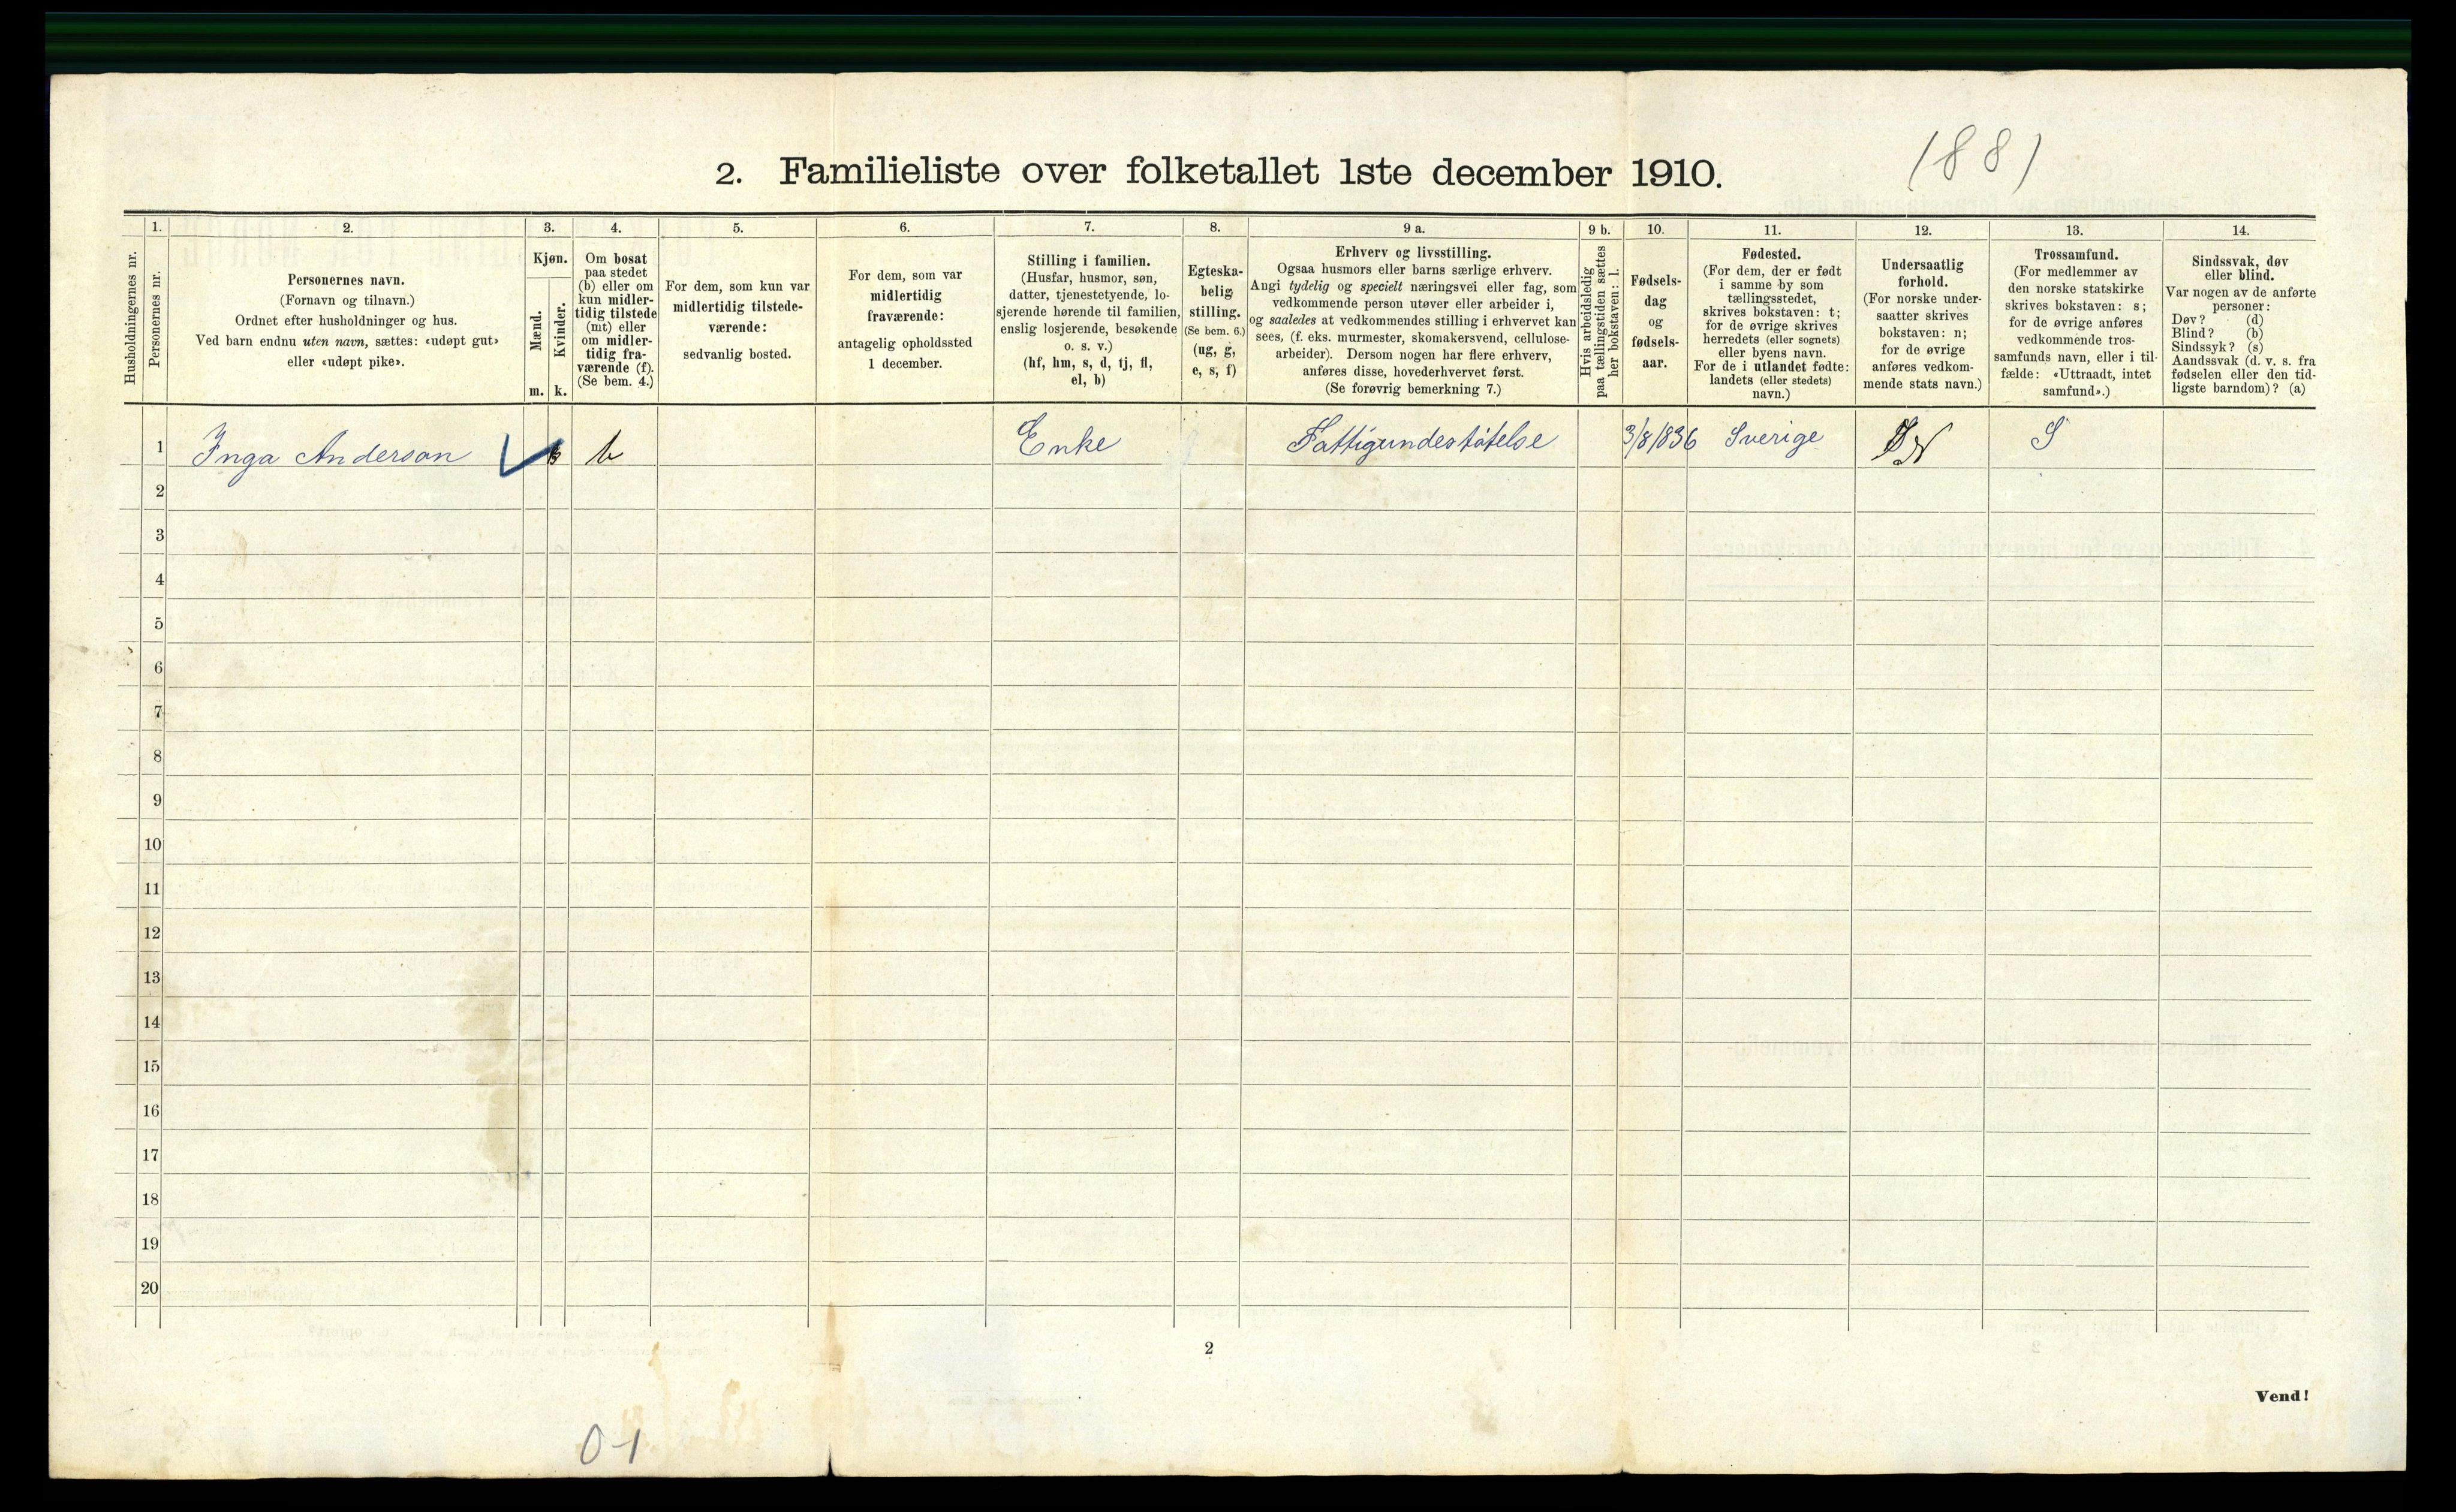 (88)
2. Familieliste over folketallet 1ste december 1910.
Husholdningernes nr.
1.
Personernes nr.
2.
Personernes navn.
(Fornavn og tilnavn.)
Ordnet efter husholdninger og hus.
Ved barn endnu uten navn, sættes: «udøpt gut»
eller «udøpt pike».
3.
Kjøn.
Mænd.
Kvinder.
m. k.
4.
Om bosat
paa stedet
(b) eller om
kun midler-
tidig tilstede
(mt) eller
om midler-
tidig fra-
værende (f).
(Se bem. 4.)
5.
For dem, som kun var
midlertidig tilstede-
værende:
sedvanlig bosted.
6.
For dem, som var
midlertidig
fraværende:
antagelig opholdssted
1 december.
7.
Stilling i familien.
(Husfar, husmor, søn,
datter, tjenestetyende, lo-
sjerende hørende til familien,
enslig losjerende, besøkende
o. s. v.)
(hf, hm, s, d, tj, fl,
el, b)
8.
Egteska-
belig
stilling.
(Se bem. 6.)
(ug, g,
e, s, f)
9 a.
Erhverv og livsstilling.
Ogsaa husmors eller barns særlige erhverv.
Angi tydelig og specielt næringsvei eller fag, som
vedkommende person utøver eller arbeider i,
og saaledes at vedkommendes stilling i erhvervet kan
sees, (f. eks. murmester, skomakersvend, cellulose-
arbeider). Dersom nogen har flere erhverv,
anføres disse, hovederhvervet først.
(Se forøvrig bemerkning 7.)
9 b.
Hvis arbeidsledig
paa tællingstiden sættes
her bokstaven: l.
10.
Fødsels-
dag
og
fødsels-
aar.
11.
Fødested.
(For dem, der er født
i samme by som
tællingsstedet,
skrives bokstaven: t;
for de øvrige skrives
herredets (eller sognets)
eller byens navn.
For de i utlandet fødte:
landets (eller stedets)
navn.)
12.
Undersaatlig
forhold.
(For norske under-
saatter skrives
bokstaven: n;
for de øvrige
anføres vedkom-
mende stats navn.)
13.
Trossamfund.
(For medlemmer av
den norske statskirke
skrives bokstaven: s;
for de øvrige anføres
vedkommende tros-
samfunds navn, eller i til-
fælde: «Uttraadt, intet
samfund».)
14.
Sindssvak, døv
eller blind.
Var nogen av de anførte
personer:
Døv? (d)
Blind? (b)
Sindssyk? (s)
Aandssvak (d. v. s. fra
fødselen eller den tid-
ligste barndom)? (a)
1 Inga Anderson b Enke Fattigundestøtelse 3/8/836 Sverige N S
2
3
4
5
6
7
8
9
10
11
12
13
14
15
16
17
18
19
20
2
Vend!
0-1